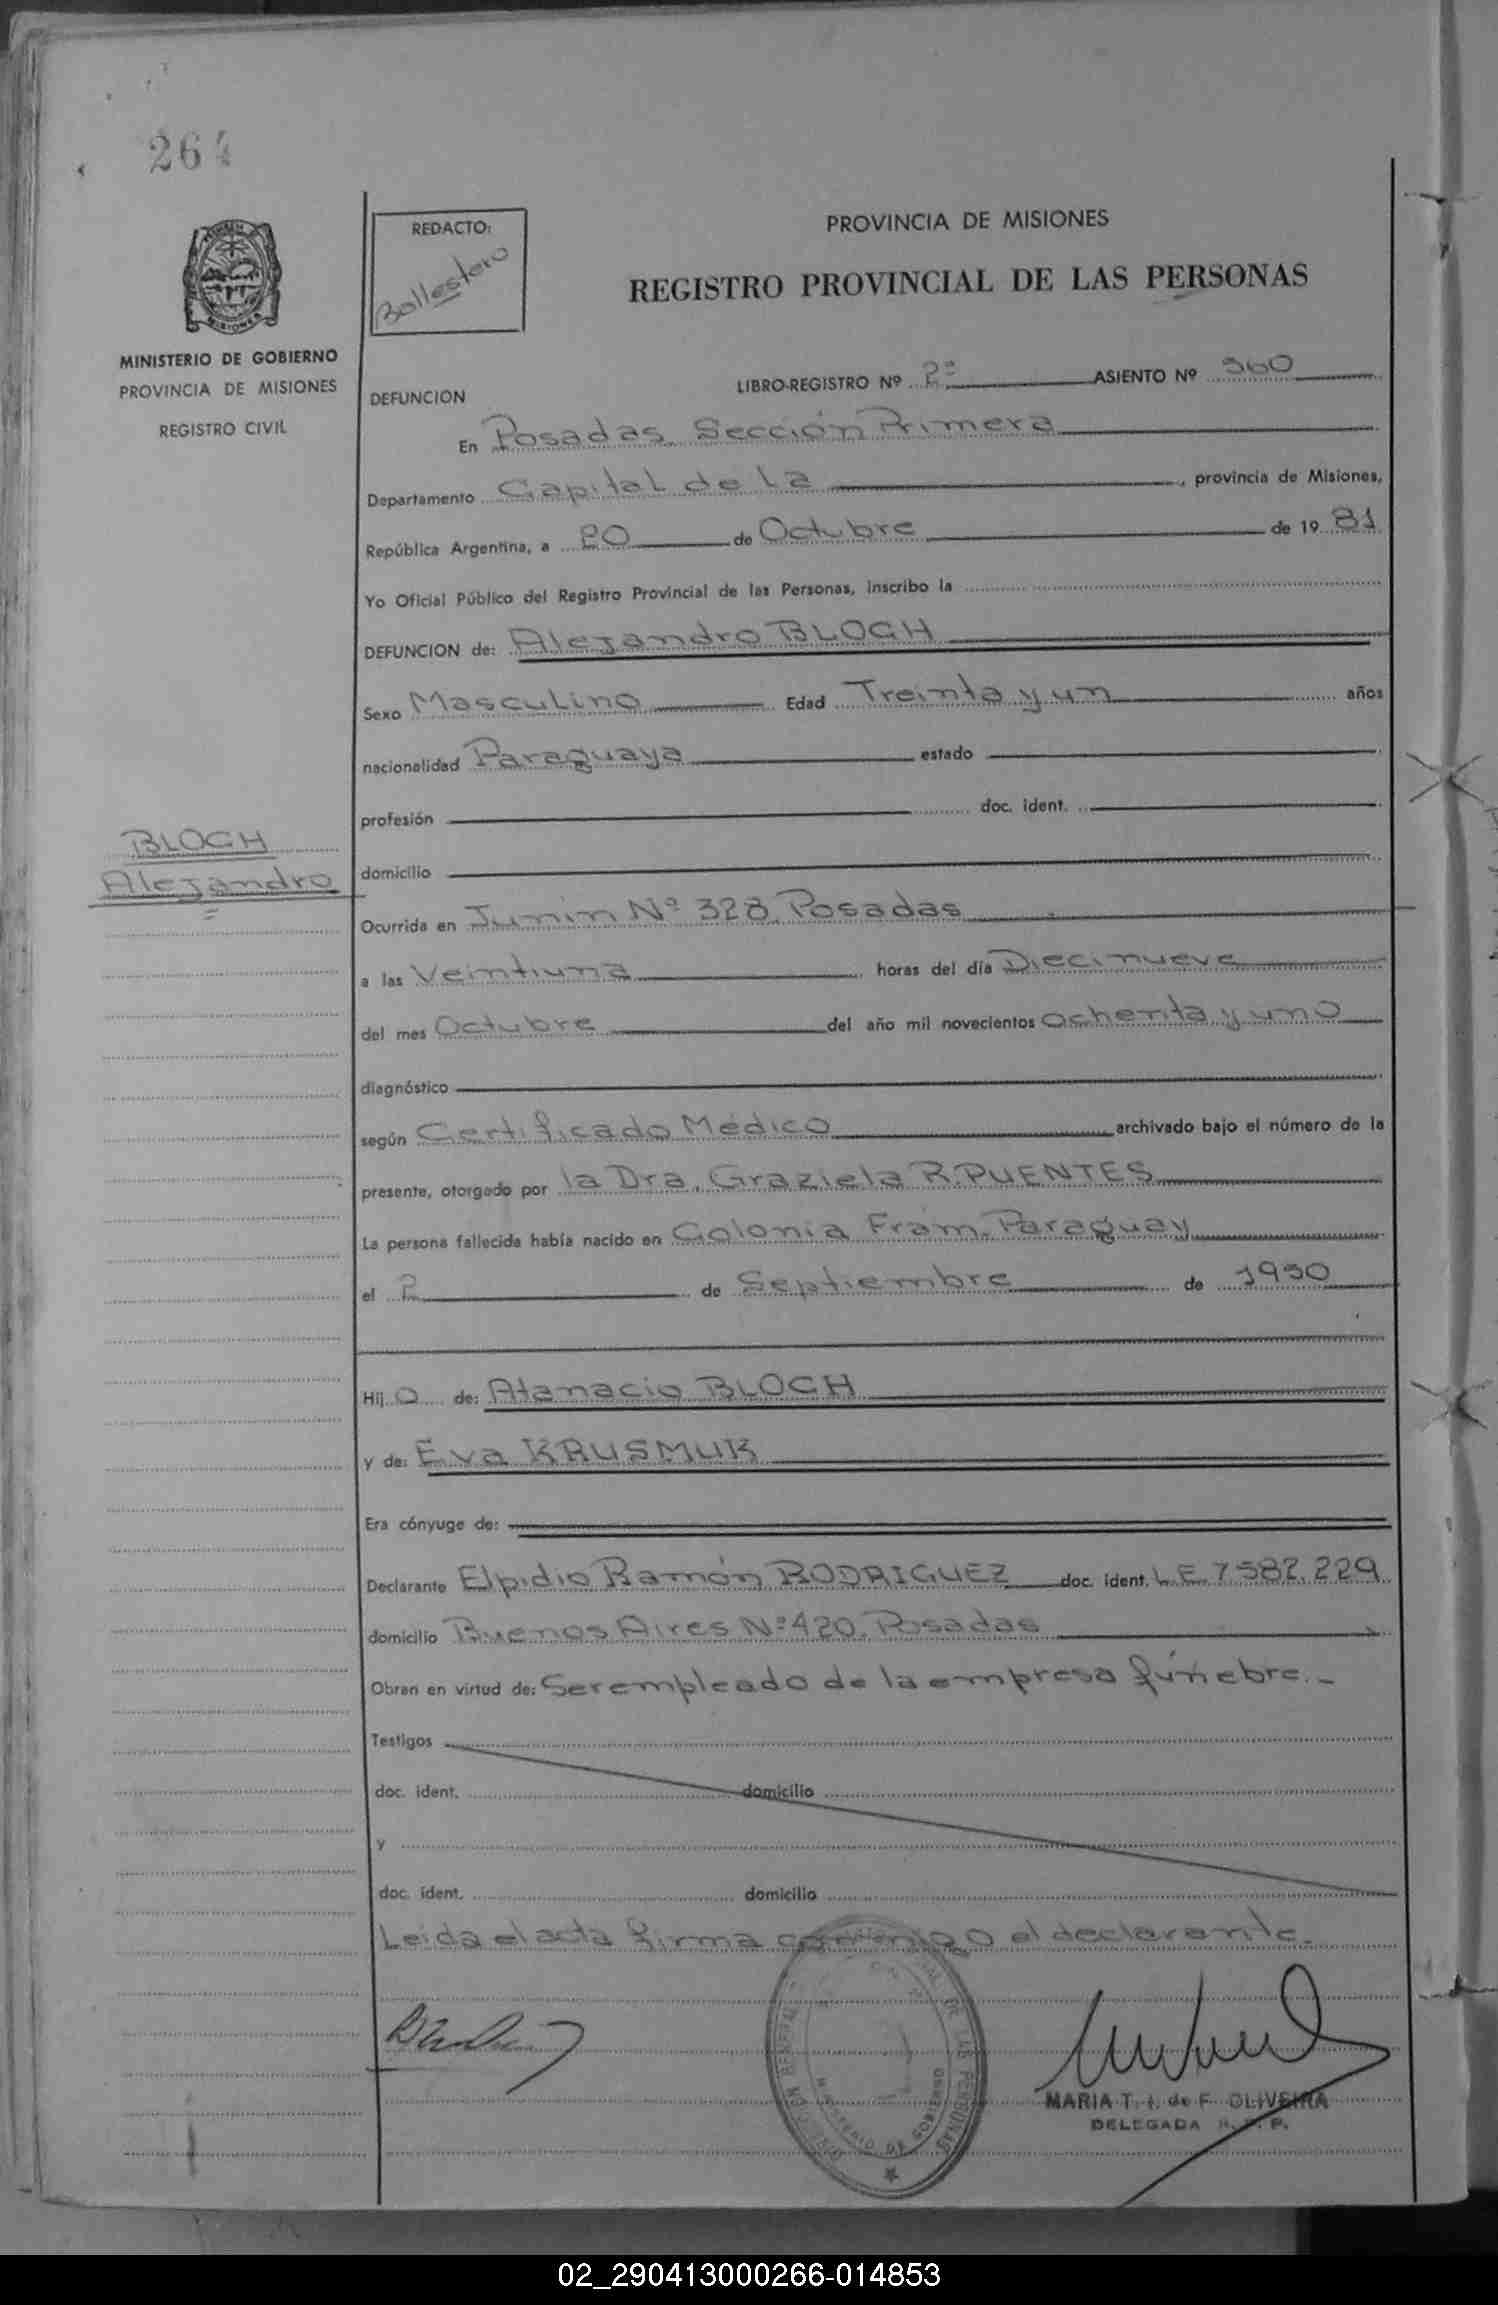 264
REDACTO:
Ballestero
PROVINCIA DE MISIONES
REGISTRO PROVINCIAL DE LAS PERSONAS
MISIONES
MINISTERIO DE GOBIERNO
PROVINCIA DE MISIONES
REGISTRO CIVIL
DEFUNCION LIBRO-REGISTRO Nº 2º ASIENTO Nº 560
En Posadas, Sección Primera
Departamento Capital de la, provincia de Misiones,
República Argentina, a 20 de Octubre de 19 81
Yo Oficial Público del Registro Provincial de las Personas, inscribo la
DEFUNCION de: Alejandro BLOCH
Sexo Masculino Edad Treinta y un años
nacionalidad Paraguaya estado
profesión doc. ident.
BLOCH
Alejandro
domicilio
Ocurrida en Junin Nº 328, Posadas
a las Veintiuna horas del día Diecinueve
del mes Octubre del año mil novecientos ochenta y uno
diagnóstico
según Certificado Médico archivado bajo el número de la
presente, otorgado por la Dra. Graziela R. PUENTES
La persona fallecida había nacido en Colonia Fram, Paraguay
el 2 de Septiembre de 1950
Hij o de: Atanacio BLOCH
y de: Eva KRUSMUK
Era cónyuge de:
Declarante Elpidio Ramón RODRIGUEZ doc. ident. L.E. 7.582.229
domicilio Buenos Aires Nº 420, Posadas
Obran en virtud de: Ser empleado de la empresa fúnebre.-
Testigos
doc. ident. domicilio
y
doc. ident. domicilio
Leida el acta firma conmigo el declarante.
DE LAS PERSONAS
MINISTERIO DE GOBIERNO
MARIA T. I. de F. OLIVEIRA
DELEGADA R. P. P.
02_290413000266-014853